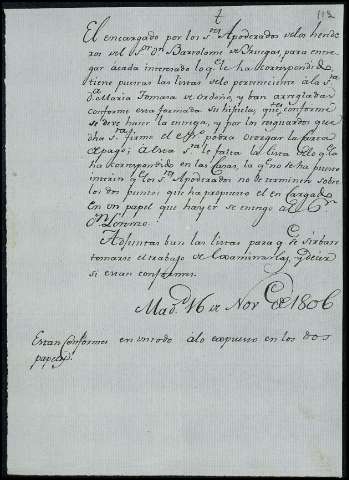 113
El encargado por los S.res Apoderados de los herede
ros del S.or D.n Bartolome de Bruegas, para entre
gar a cada interesado lo q.e le ha correspondido
tiene puestas las listas de lo perteneciente a la S.ra
D.a Maria Tomasa de Ordoño, y ban arregladas
conforme esta formada su hijuela; que conforme
se debe hacer la entrega, y por los resguardos que
dha S.ra firme el podra otorgar la Carta
de pago; a esta S.ra le falta la lista de lo q.e la
ha correspondido en las Casas, la q.e no se ha puesto
interin q.e los S.res Apoderados no determinen sobre
los dos puntos que ha propuesto el encargado
en un papel que hayer se entrego al S.or
D.n Lorenzo.
Adjuntas ban las listas para q.e se sirban
tomarse el trabajo de examinarlas, y decir
si estan conformes.
Mad.d 16 de Nov.e de 1806
Estan Conformes en un todo a lo expuesto en los dos
papeles.